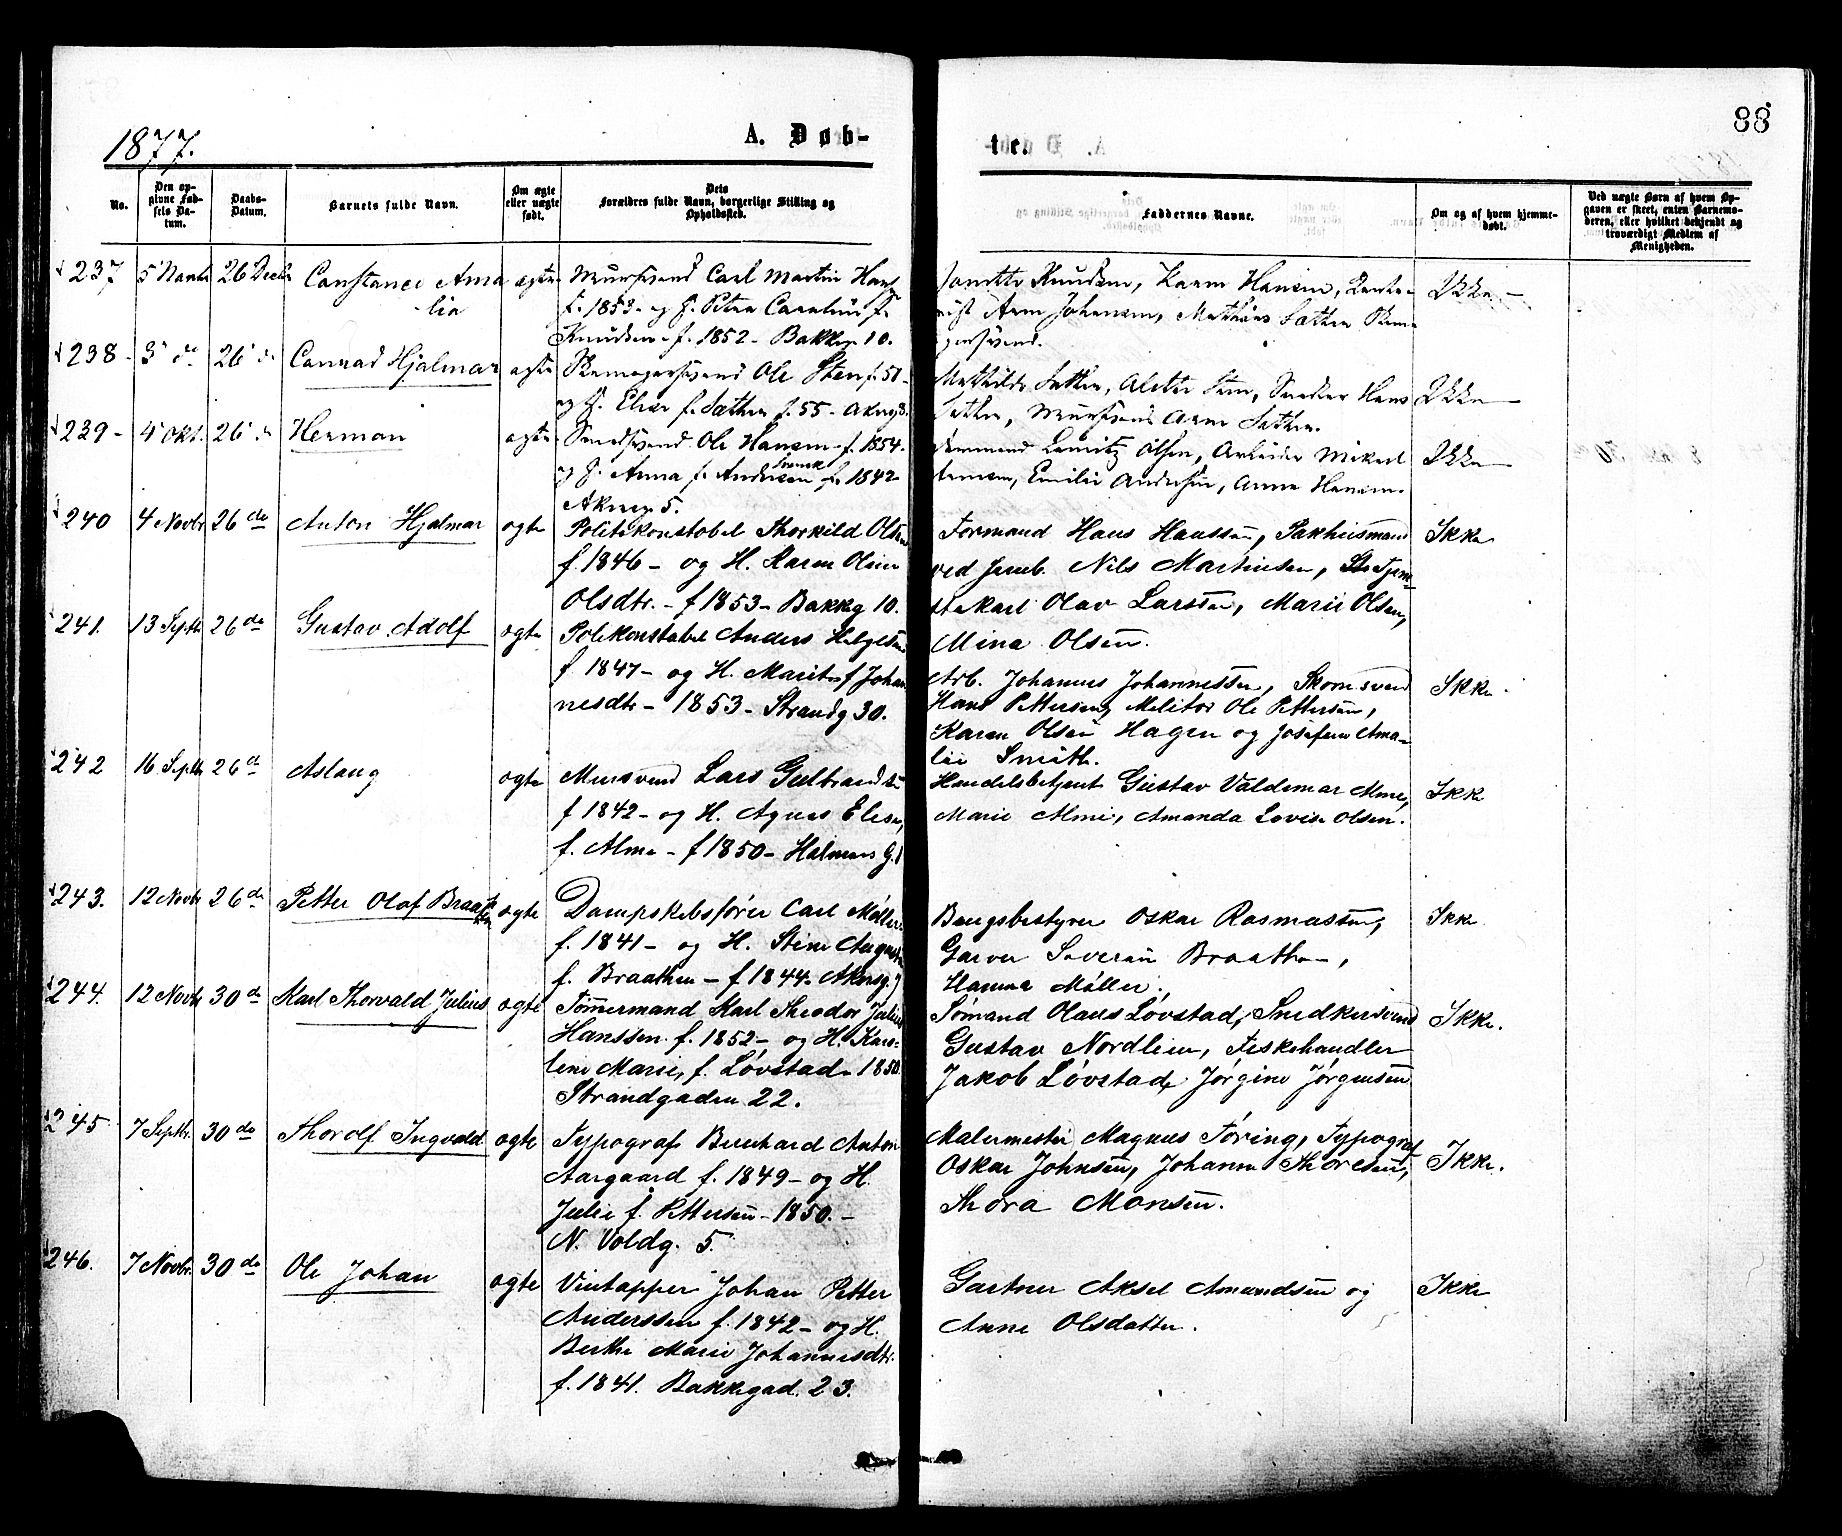 1877.
A. Døb-
No.
Den op-
givne Fød-
sels Da-
tum.
Daabs-
Datum.
Barnets fulde Navn.
Om ægte
eller uægte
født.
Dets
Forældres fulde Navn, borgerlige Stilling og
Opholdssted.
237 5 26 Decb Constance Ama ægte Muursvend Carl Martin Hans
lia f. 1853 - og H. Petra f.
Knudsen - f. 1852 - Bakkg 10.
238 - 3 do 26 do Conrad Hjalmar ægte Ole Sten f. 51 -
og H. Elise f. Sæthre f. 55 - Akersg 8.
239 - 4 Okt. 26 do Herman ægte Smedsvend Ole Hansen - f. 1854.
og H. Anna f. Andersen f. 1842
Akersg. 5.
240 4 Novbr 26 do Anton Hjalmar ægte Politikonstabel Thorkild Olsen
f. 1846 - og H. Karen Oline
Olsdtr. - f 1853 - Bakkg 10.
241. 13 Septb 26 do Gustav Adolf ægte Polikonstabel Anders Helgesen
f. 1847 - og H. Marit f Johan
nesdtr - 1853 - Strandg 30.
242 16 Septb 26 do Aslaug ægte Mursvend Lars Gulbrandsen
f 1842 - og H. Agnes Elise,
f. Alme - f 1850 - Holmens G.
243. 12 Novbr 26 do Petter Olaf Braathen ægte Dampskibsfører Carl Møller
f. 1841 - og H. Stine Auguste
f. Braathen - f 1844. Akersg.
244. 12 Novbr 30 do Karl Thorvald Julius ægte Tømmermand Karl Theodor Julius
Hanssen. f. 1852 - og H. Karo-
line Marie, f. Løvstad - 1850
Strandgaden 22.
245 7 Septbr. 30 do Thorolf Ingvald ægte Typograf Bernhard Anton
Aargaard f. 1849 - og H.
Julie f. Pettersen - 1850. -
N. Voldg. 5.
246. 7 Novbr. 30 do Ole Johan ægte Vintapper Johan Petter
Anderssen f. 1842 - og H.
Berthe Marie Johannesdtr.
f. 1841. Bakkegad. 23.
88
te.
Faddernes Navne.
Om og af hvem hjemme-
døbt.
Ved uægte Børn af hvem Op-
gaven er skeet, enten Barnemo-
deren, eller hvilket bekjendt og
troværdigt Medlem af
Menigheden.
Knudsen, Karen Hansen, Ikke -
Arne Johansen, Mathias Sæthre
Mathilde Sæthre, Sten, Snedker Hans Ikke
Sæthre, Muursvend Arne Sæthre.
Olsen, Arbeider Mikael Ikke
Emilie Andersen, Anna Hansen.
Formand Hans Hanssen, Pakhusmand Ikke
ved Jernb. Nils Martinsen, Tjene-
stekarl Olav Larssen, Marie Olsen,
Mina Olsen.
Arb. Johannes Johannessen, Skomsvend Ikke.
Hans Pettersen, Militær Ole Pettersen,
Karen Olsen Hagen og Josefine Ama-
lie Smith.
Handelsbetjent Gustav Valdemar Alme, Ikke
Marie Alme, Amanda Lovise Olsen.
Brugsbestyrer Oskar Rasmussen, Ikke
Garver Severin Braathen,
Hanna Møller.
Sømand Olaus Løvstad, Snedkersvend Ikke.
Gustav Nordlien, Fiskehandler
Jakob Løvstad, Jørgine Jørgensen
Malermester Magnus Føring, Typograf
Oskar Johnsen, Johanne Thoresen, Ikke.
Thora Monsen.
Gartner Aksel Amundsen og Ikke
Anne Olsdatter.